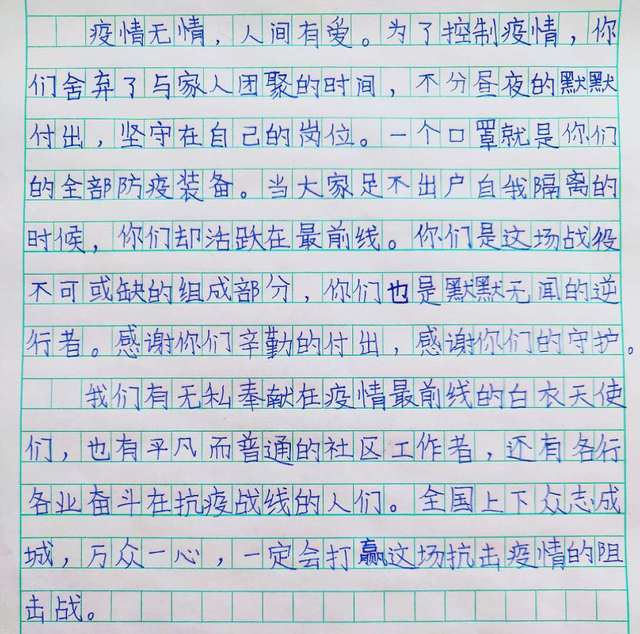 疫情无情，人间有爱。为了控制疫情，你
们舍弃了与家人团聚的时间，不分昼夜的默默
付出，坚守在自己的岗位。一个口罩就是你们
的全部防疫装备。当大家足不出户自我隔离的
时候，你们却活跃在最前线。你们是这场战役
不可或缺的组成部分，你们也是默默无闻的逆
行者。感谢你们辛勤的付出，感谢你们的守护。
我们有无私奉献在疫情最前线的白衣天使
们，也有平凡而普通的社区工作者，还有各行
各业奋斗在抗疫战线的人们。全国上下众志成
城，万众一心，一定会打赢这场抗击疫情的阻
击战。